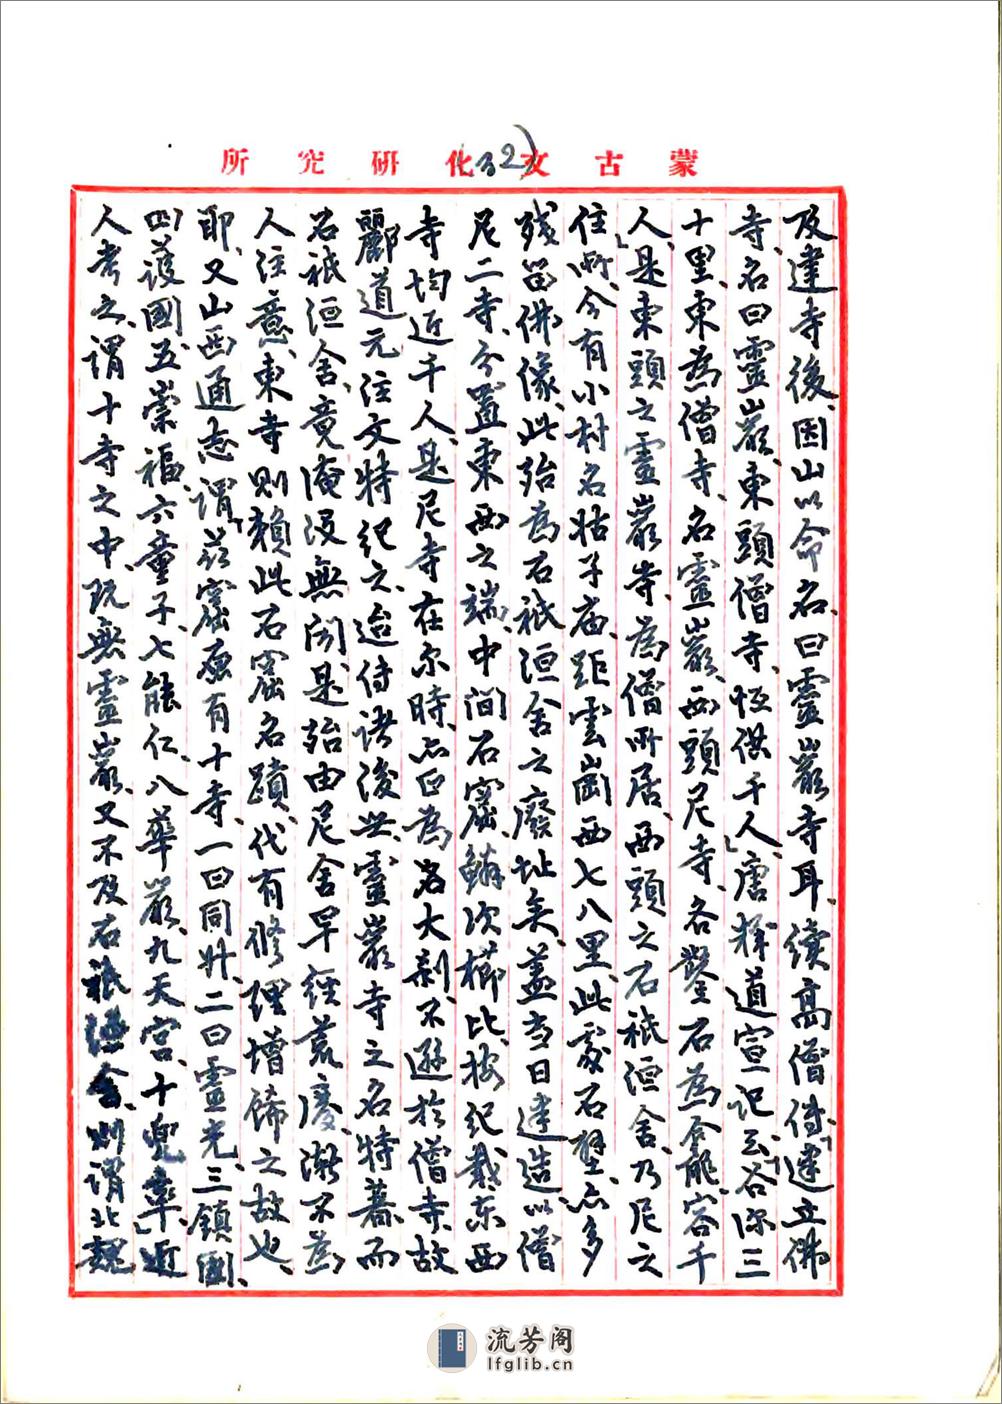 蒙古文化研究所
32)
及建寺後、因山以命名、曰靈巖寺耳、續高僧傳「建立佛
寺、名曰靈巖、東頭僧寺、恆供千人」、唐釋道宣記云「谷深三
十里、東為僧寺、名靈巖、西頭尼寺、各鑿石為龕、容千
人」、是東頭之靈巖寺、為僧所居、西頭之石祇洹舍、乃尼之
住所、今有小村名姑子庙、距雲崗西七八里、此處石壁、亦多
殘留佛像、此殆為石祇洹舍之廢址矣、蓋当日建造、以僧
尼二寺、分置東西之端、中间石窟、鱗次櫛比、按紀載、东西
寺均近千人、是尼寺在尔時、亦正為名大剎、不遜於僧寺、故
酈道元注文特紀之、迨传诸後世、靈巖寺之名特著、而
石祇洹舍、竟淹沒無闻、是殆由尼舍早經荒廢、漸不為
人注意、東寺則賴此石窟名蹟、代有修理增飾之故也、
耶、又山西通志謂「茲窟原有十寺、一曰同升、二曰靈光、三鎮國、
四護國、五崇福、六童子、七能仁、八華嚴、九天宮、十兜率」、近
人考之、謂十寺之中、既無靈巖、又不及石祇洹舍、則謂北魏
流芳阁
lfglib.cn